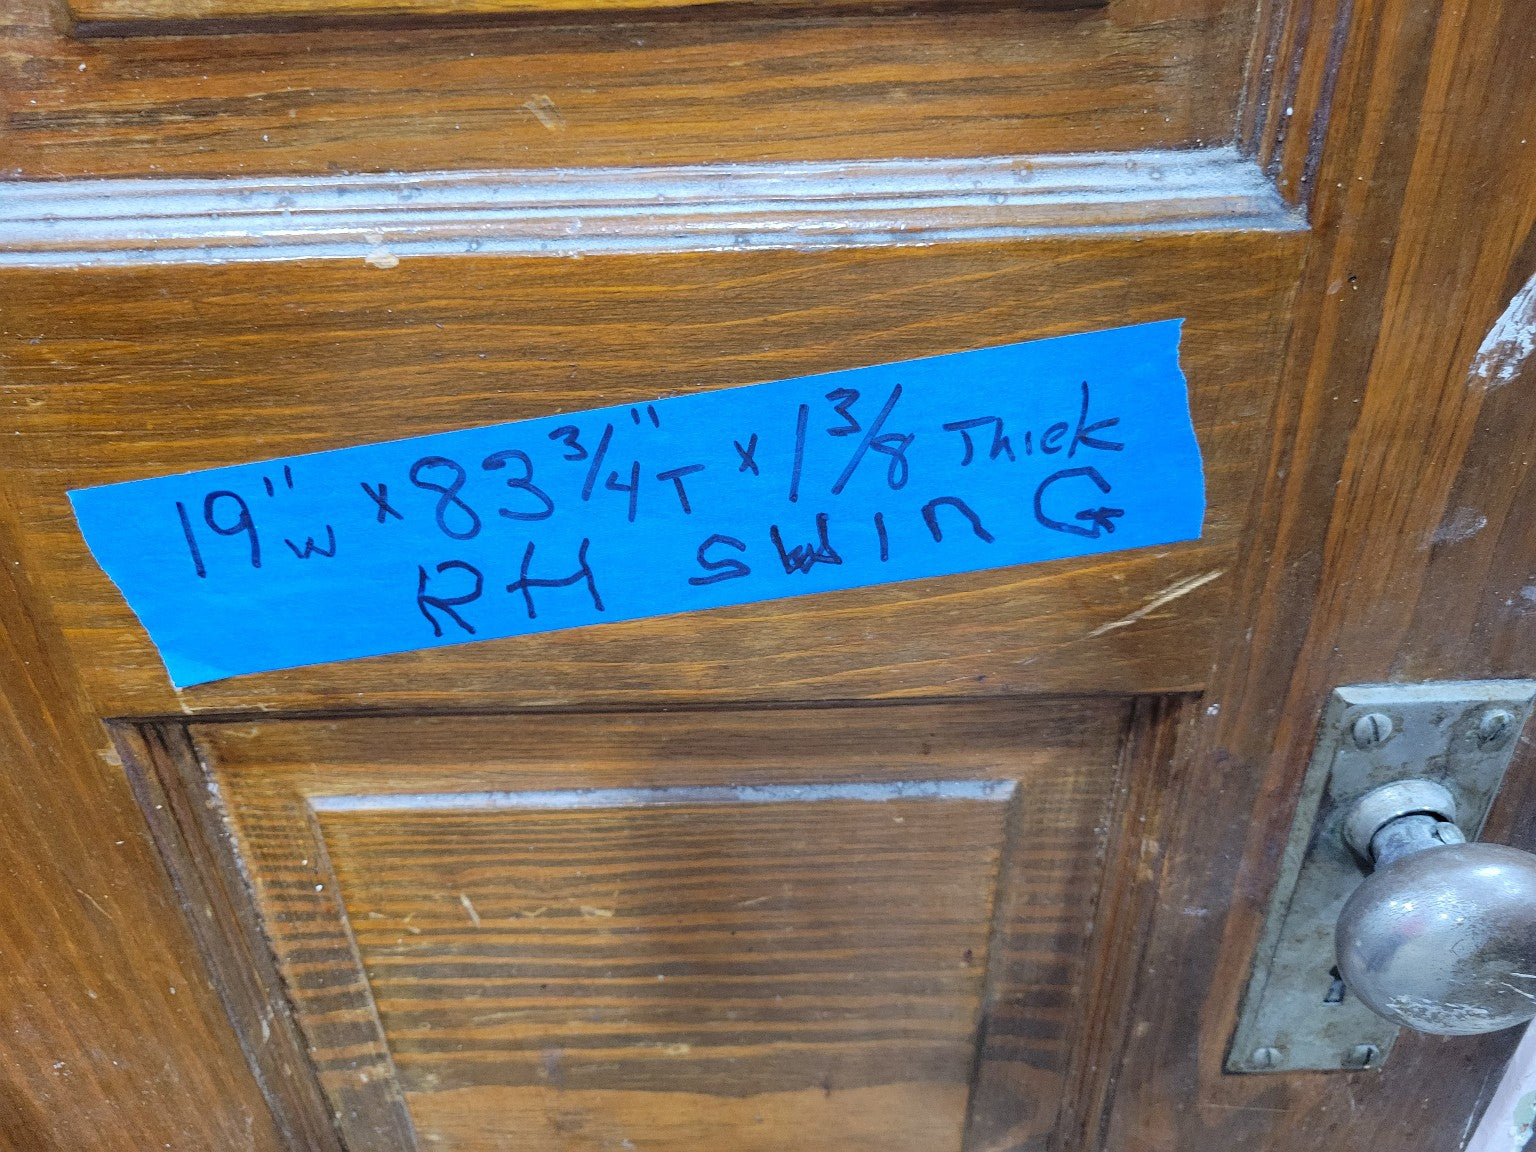 19" W x 83 3/4" T x 1 3/8 Thick
RH SWING